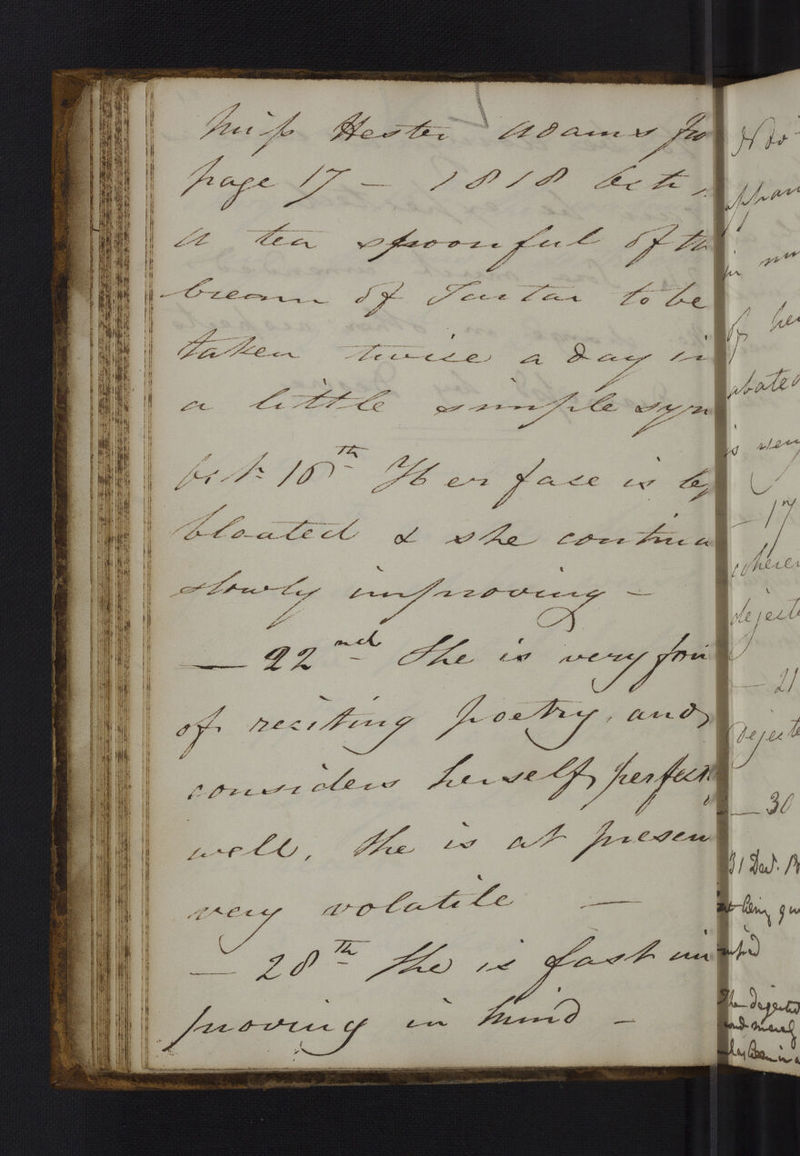 Miss Hester Adams fro
page 17 - 1818 Oct
a tea spoonful of th
cream of Tartar to be
taken twice a day in
a little simple syru
Oct. 16th Her face is le
bloated & she continu
slowly improving -
— 22nd She is very fon
of reciting poetry, and
considers herself perfect
well, She is at presen
very volatile —
— 28th She is fast im
proving in mind -
Nov
appar
in
of her
abated
is very
- 17
coherer
deject
- 21
dejecte
— 30
31 Dec.
being
The dejected
and
has been in a